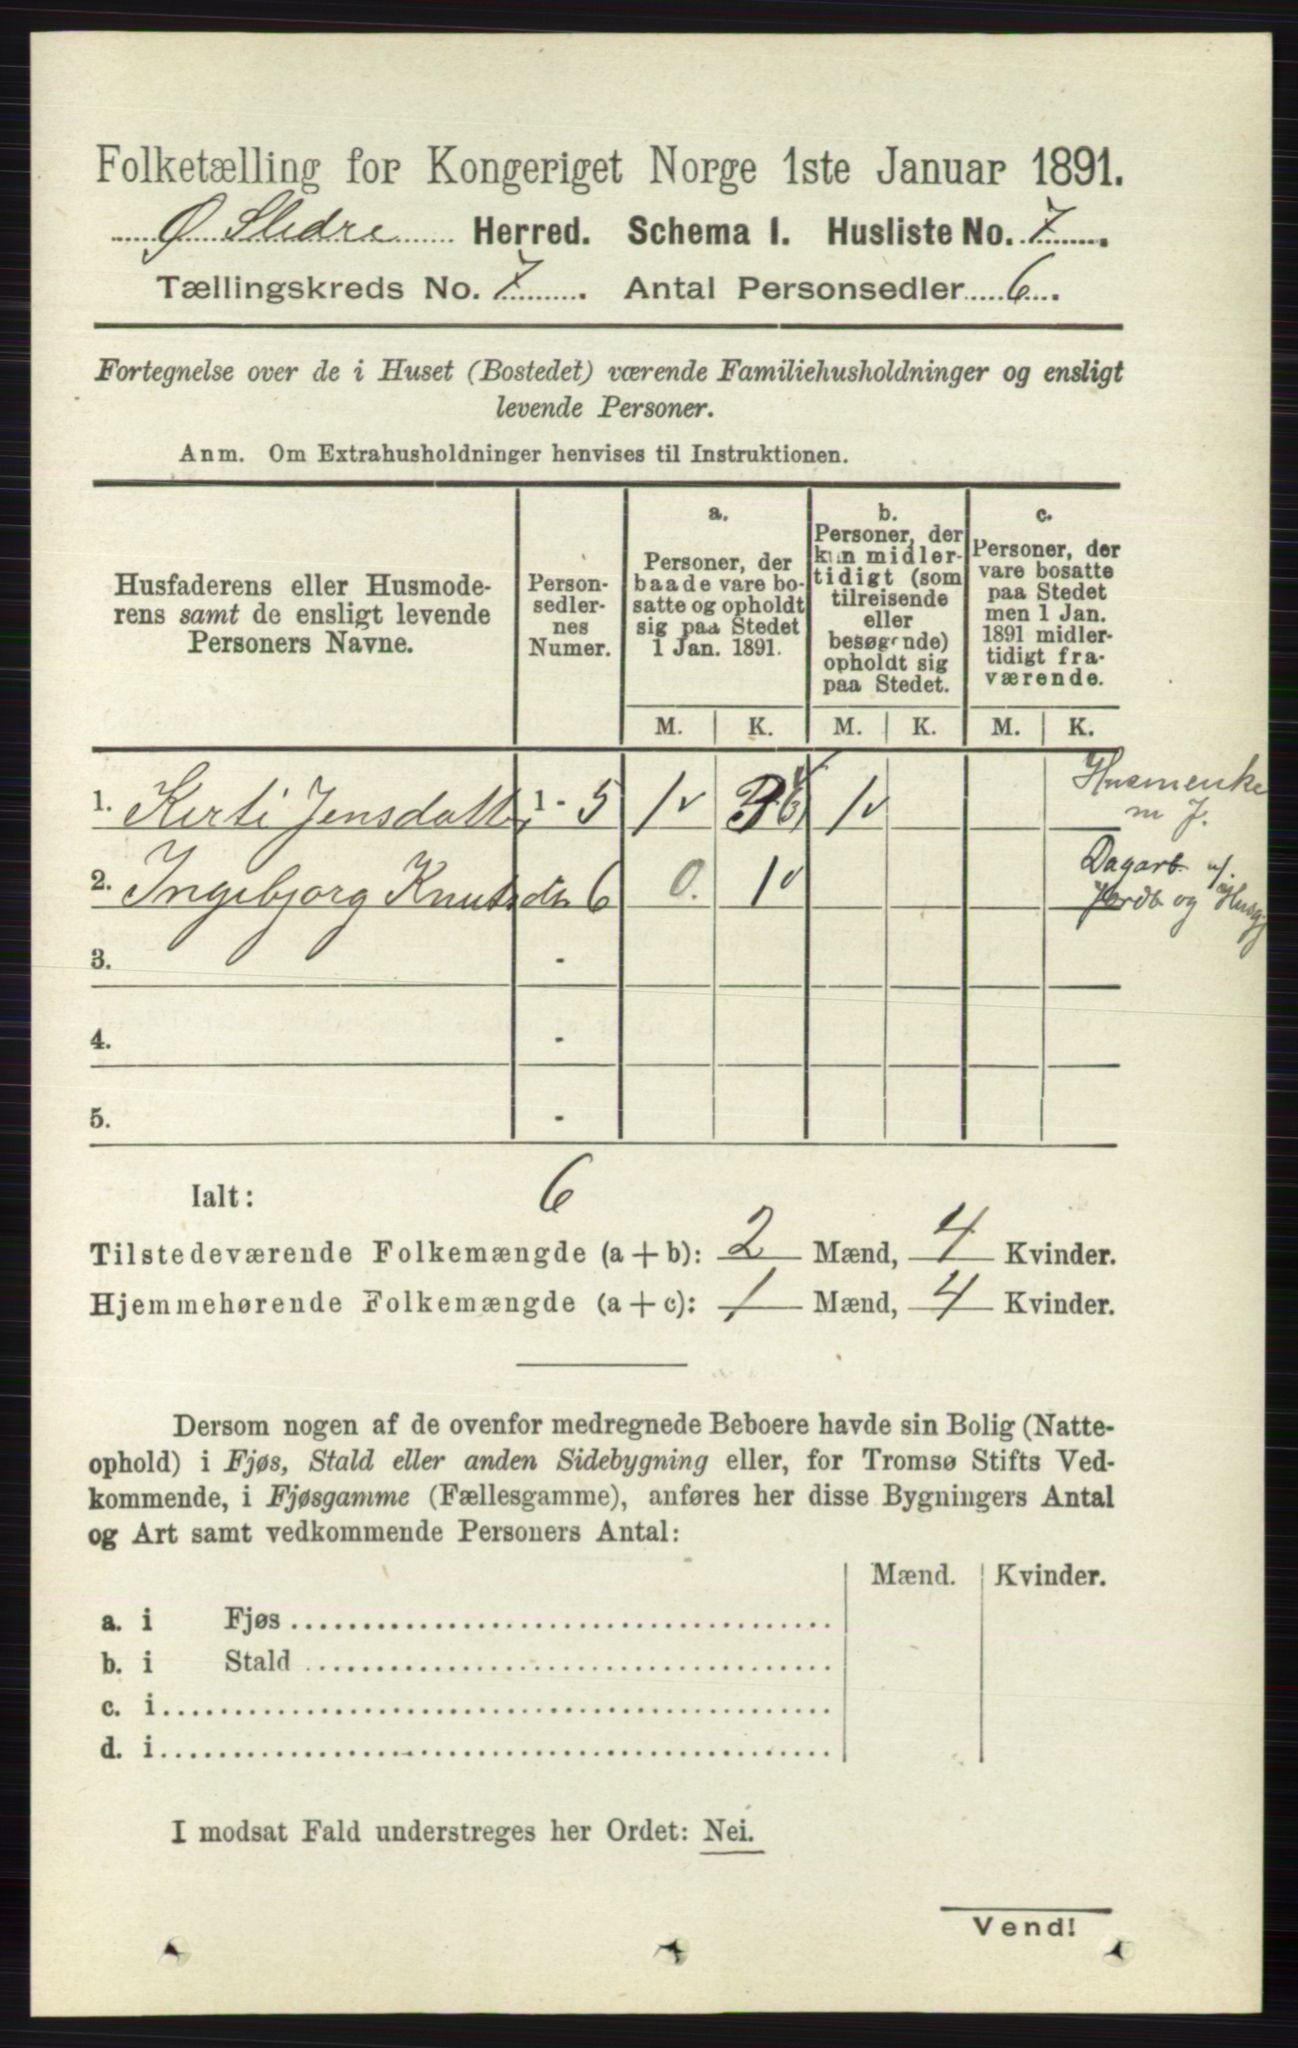 Folketælling for Kongeriget Norge 1ste Januar 1891.
Ø Slidre Herred. Schema I. Husliste No. 7.
Tællingskreds No. 7. Antal Personsedler 6.
Fortegnelse over de i Huset (Bostedet) værende Familiehusholdninger og ensligt
levende Personer.
Anm. Om Extrahusholdninger henvises til Instruktionen.
Husfaderens eller Husmode-
rens samt de ensligt levende
Personers Navne.
Person-
sedler-
nes
Numer.
a.
Personer, der
baade vare bo-
satte og opholdt
sig paa Stedet
1 Jan. 1891.
b.
Personer, der
kun midler-
tidigt (som
tilreisende
eller
besøgende)
opholdt sig
paa Stedet.
c.
Personer, der
vare bosatte
paa Stedet
men 1 Jan.
1891 midler-
tidigt fra-
værende.
M. K. M. K. M. K.
1. Kirti Jensdatt 1 - 5 1 1 Husmenke
m J.
2. Ingebjorg Knutsdtr 6 0. 1 Dagarb u/
Jordb og Husg
3. -
4. -
5. -
Ialt: 6
Tilstedeværende Folkemængde (a + b): 2 Mænd, 4 Kvinder.
Hjemmehørende Folkemængde (a + c): 1 Mænd, 4 Kvinder.
Dersom nogen af de ovenfor medregnede Beboere havde sin Bolig (Natte-
ophold) i Fjøs, Stald eller anden Sidebygning eller, for Tromsø Stifts Ved-
kommende, i Fjøsgamme (Fællesgamme), anføres her disse Bygningers Antal
og Art samt vedkommende Personers Antal:
Mænd. Kvinder.
a. i Fjøs
b. i Stald
c. i
d. i
I modsat Fald understreges her Ordet: Nei.
Vend!